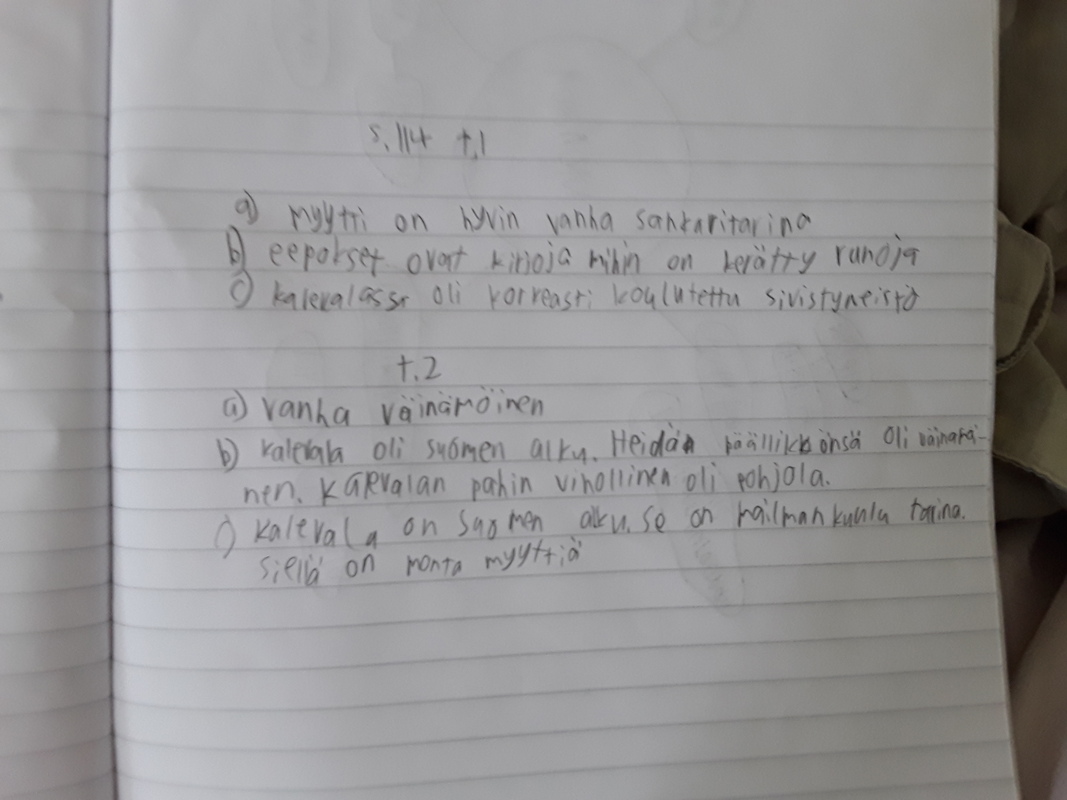 s. 114 t.1
a) myytti on hyvin vanha sankaritarina
b) eepokset ovat kirjoja mihin on kerätty runoja
c) kalevalassa oli korkeasti koulutettu sivistyneistö
t.2
a) vanha väinämöinen
b) kalevala oli suomen alku. Heidän päällikkönsä oli väinämö-
nen. Kalevalan pahin vihollinen oli pohjola.
c) kalevala on suomen alku. se on mailman kuulu tarina.
siellä on monta myyttiä